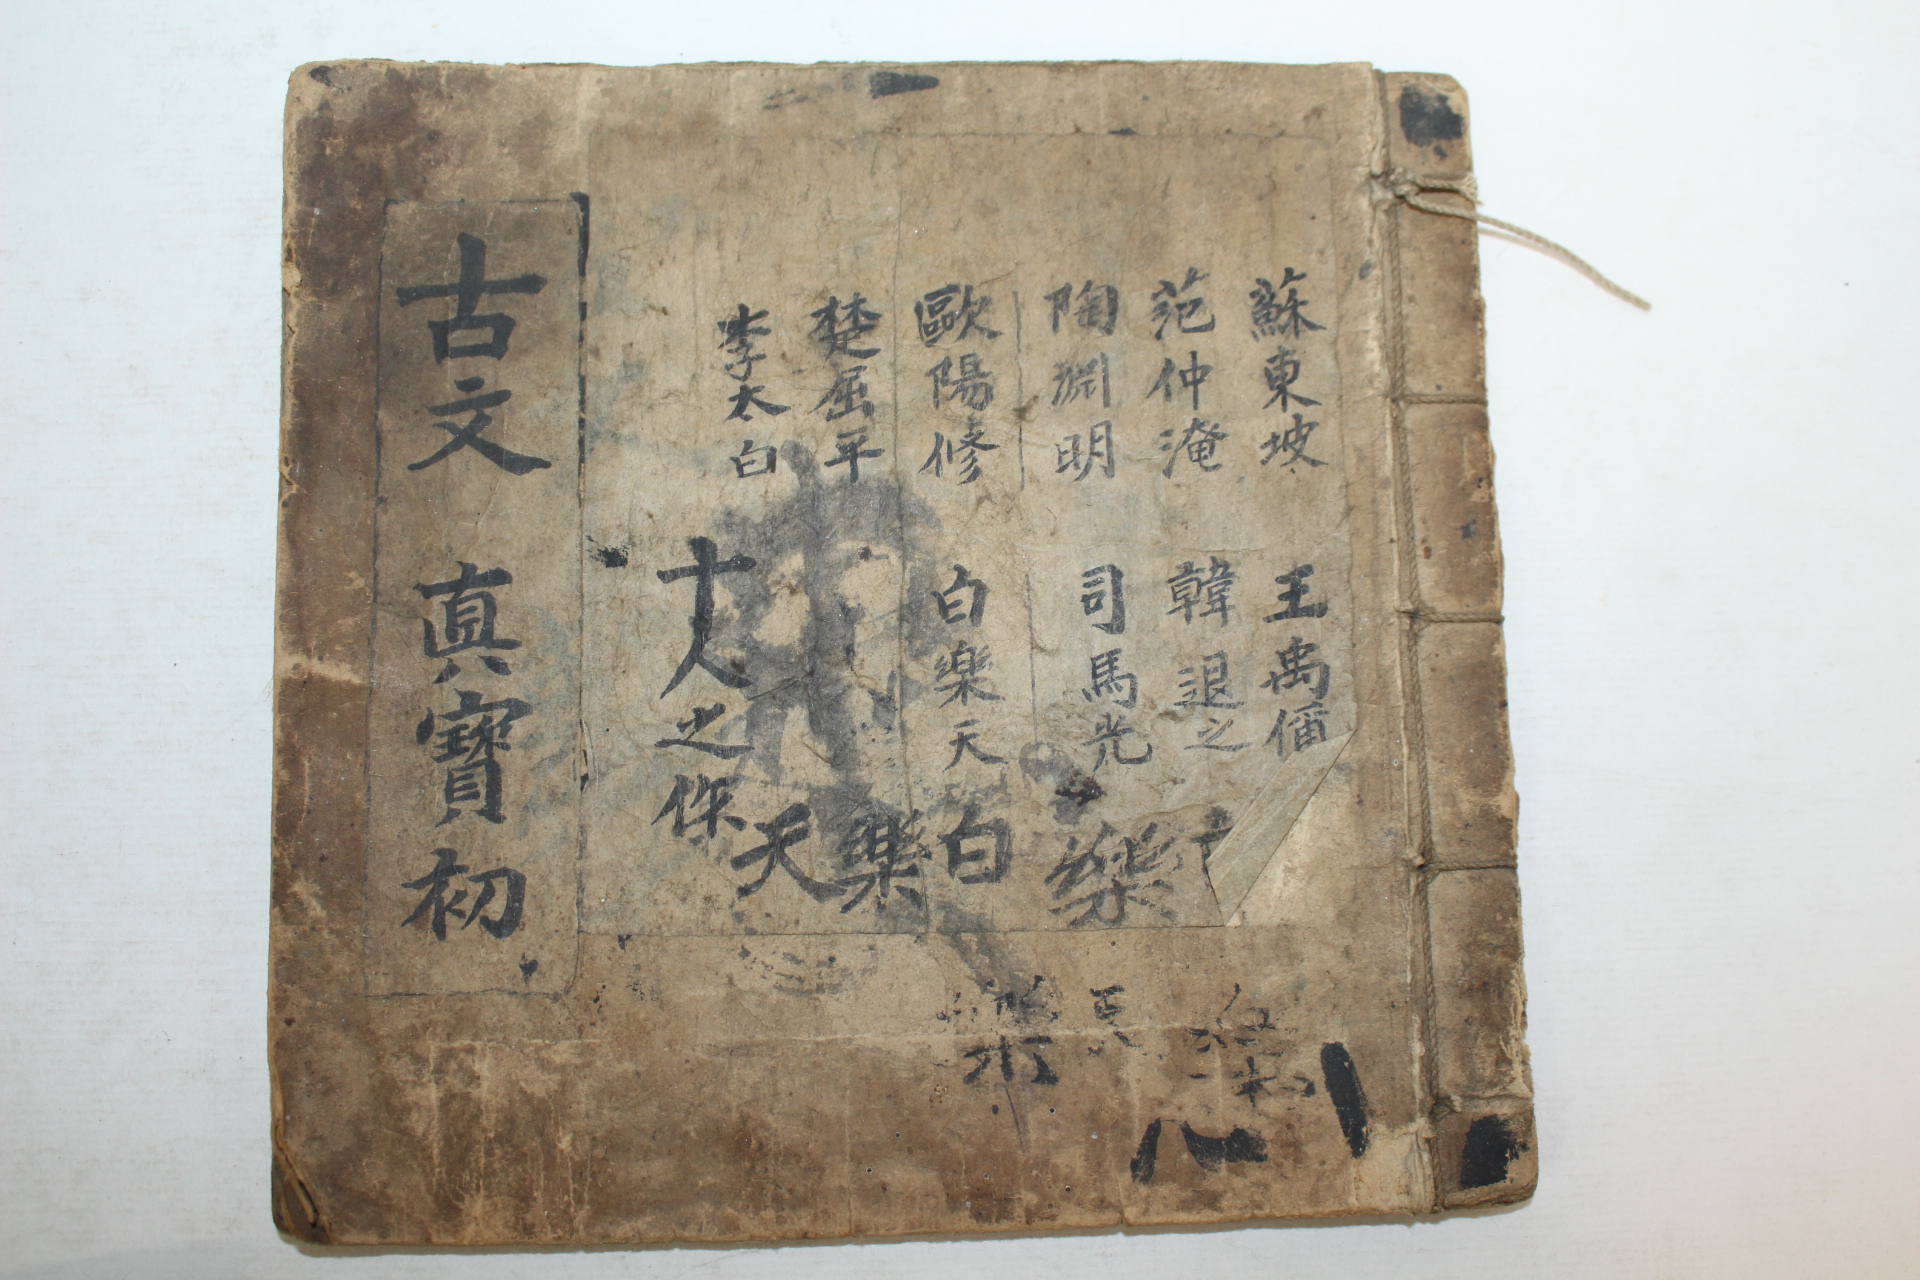 蘇東坡 王禹偁
范仲淹 韓退之
陶淵明 司馬光
歐陽修 白樂天
楚屈平
李太白
十人之
樂
白
樂
天
古文 眞寶 初